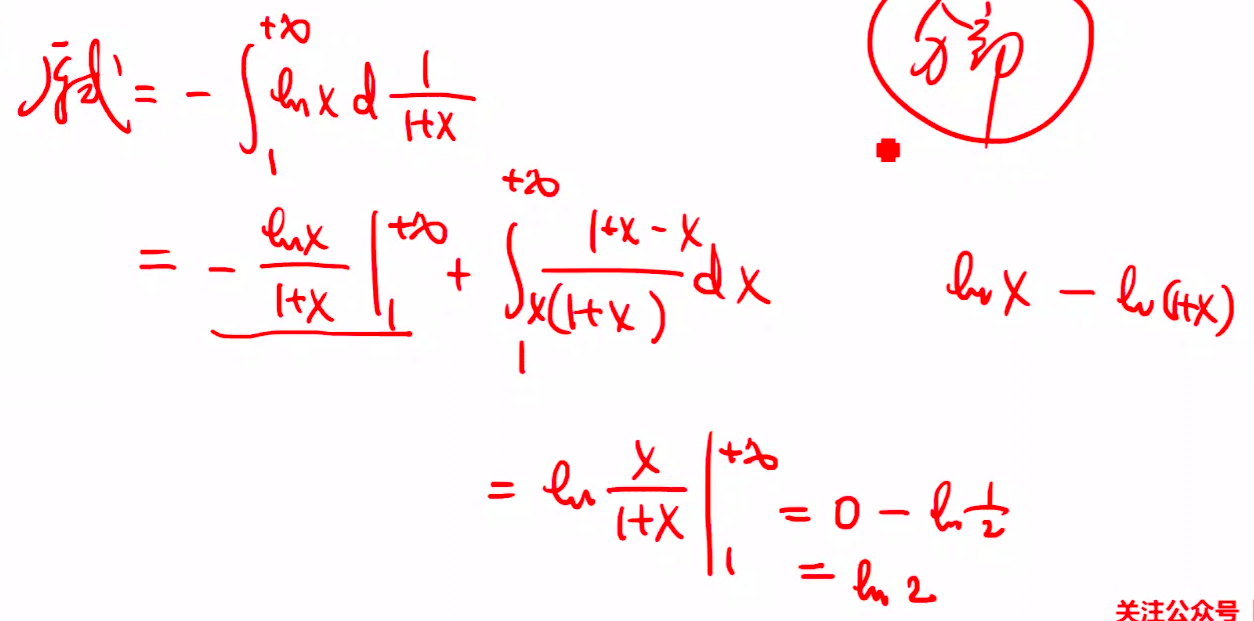 分部
原式 = - ∫₁^{+∞} ln x d 1/(1+x)
= - ln x/(1+x) |₁^{+∞} + ∫₁^{+∞} (1+x-x)/(x(1+x)) dx
ln x - ln(1+x)
= ln x/(1+x) |₁^{+∞} = 0 - ln 1/2
= ln 2
关注公众号